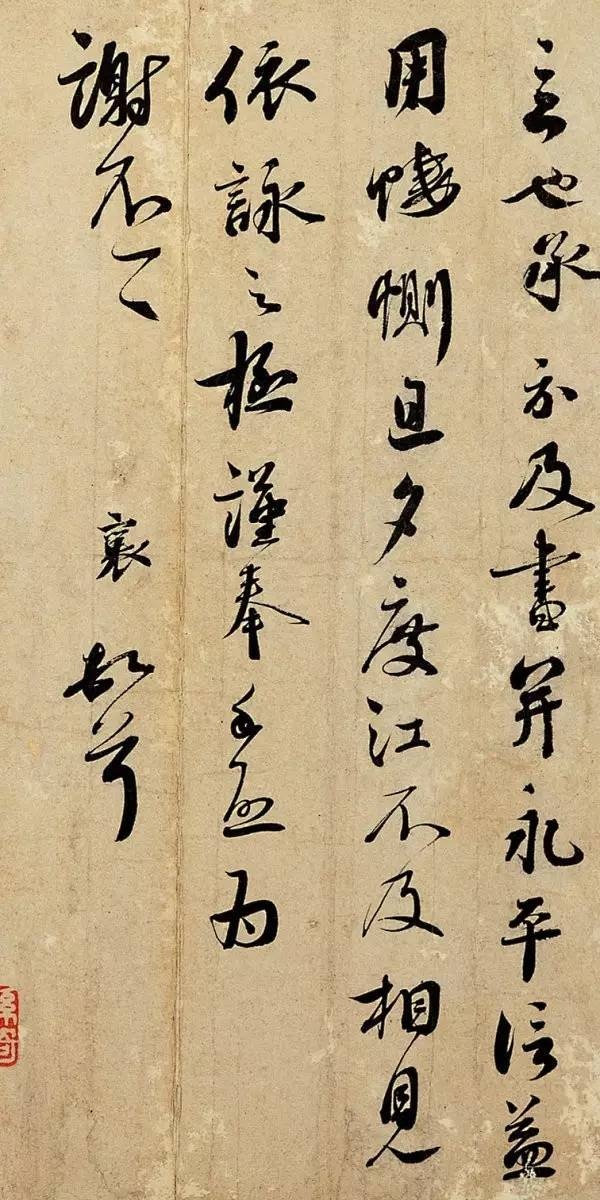 言也承示及書并永平信益
用悽惻旦夕度江不及相見
依詠之極謹奉手啟為
謝不一
襄頓首